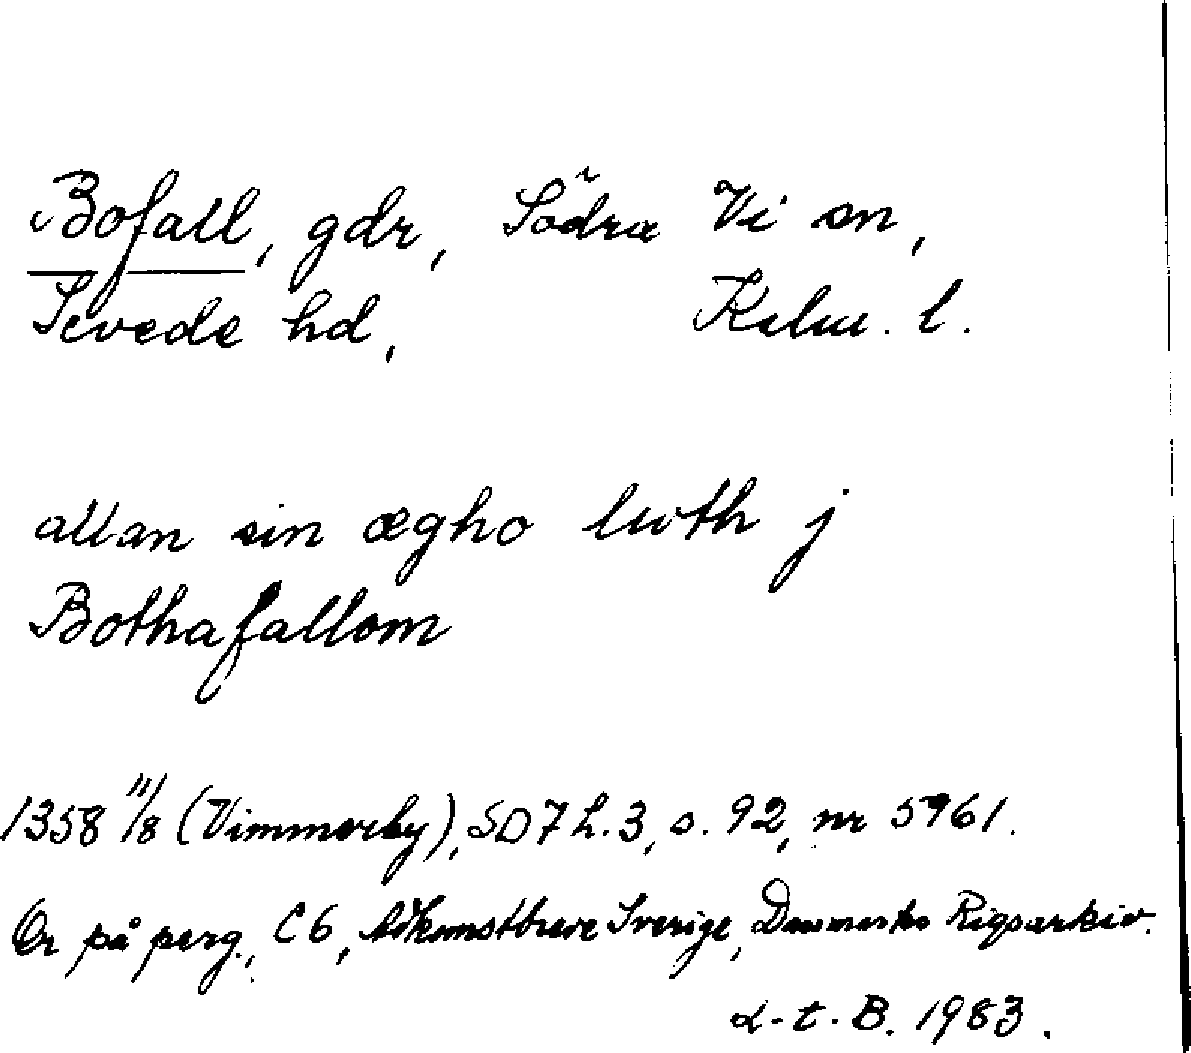 Bofall, gdr, Södra Vi sn,
Sevede hd, Kalm. l.
allan sin ægho luth j
Bothafallom
1358 11/8 (Vimmerby), SD 7 h. 3, s. 92, nr 5961.
Or på perg., C 6, Adkomstbreve Sverige, Danmarks Rigsarkiv.
L-t. B. 1983.